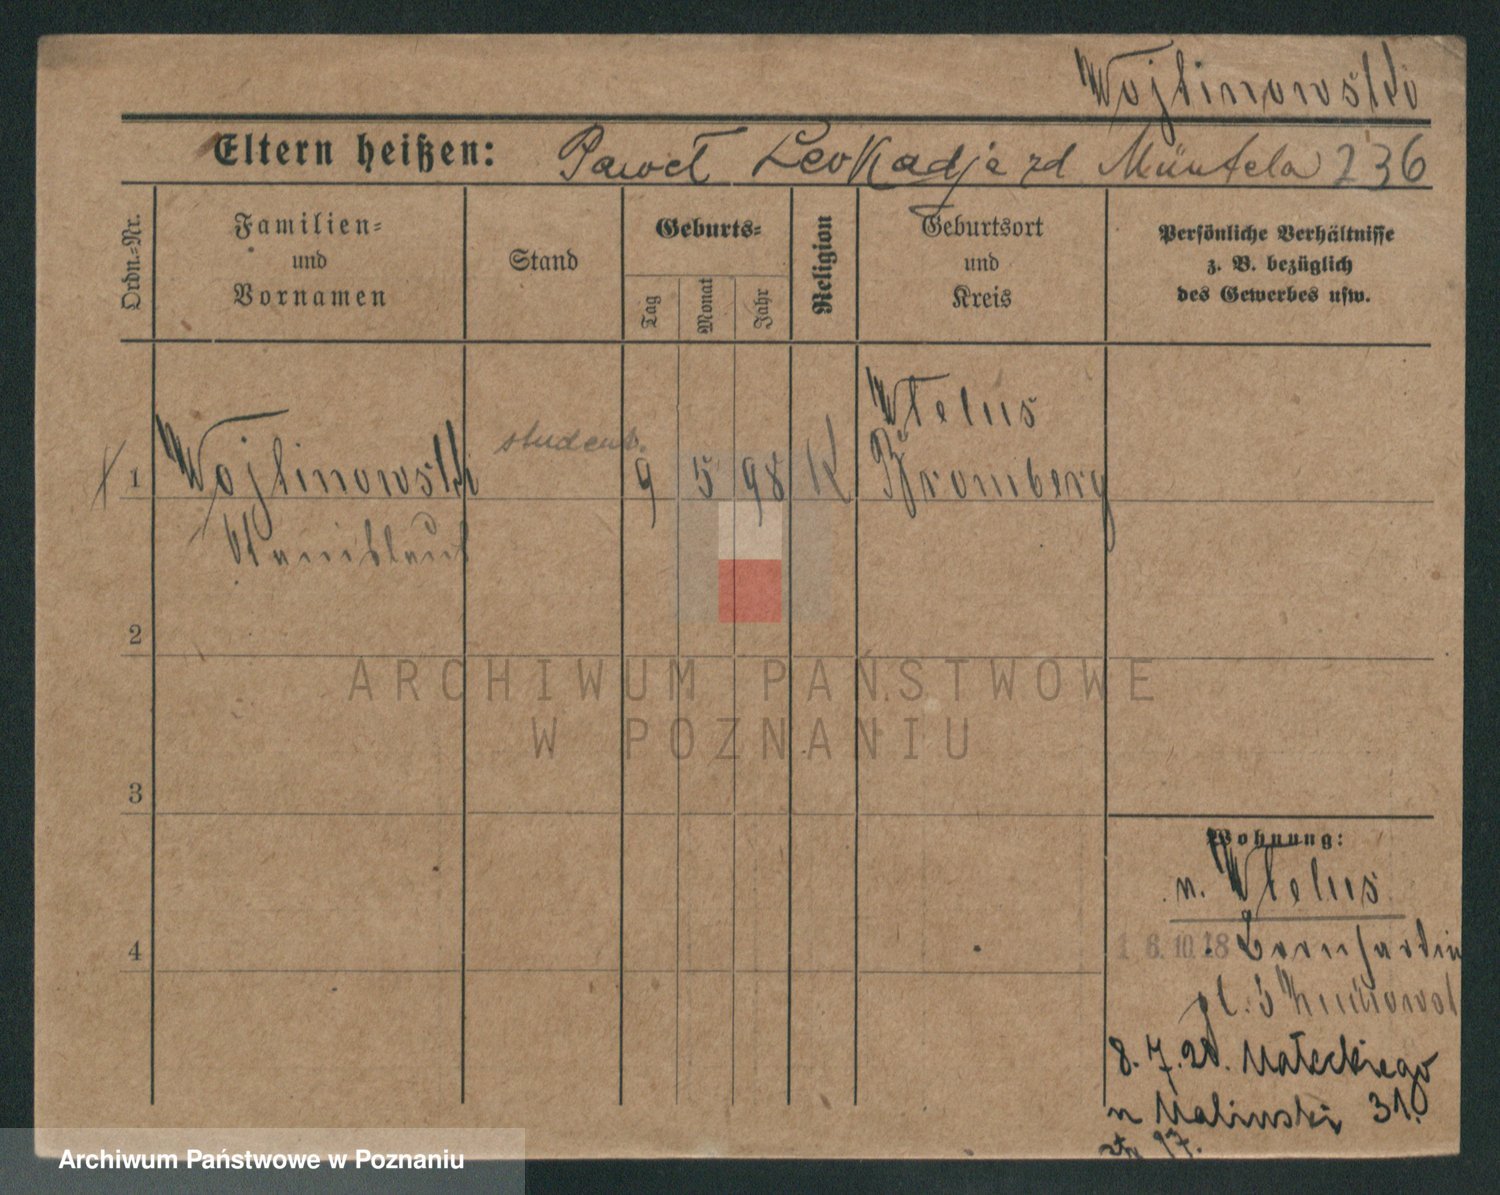 Wojtinowski
Eltern heißen: Paweł Leokadja zd Müntela 236
Ordn.-Nr.
Familien-
und
Vornamen
Stand
Geburts-
Tag
Monat
Jahr
Religion
Geburtsort
und
Kreis
Persönliche Verhältnisse
z. B. bezüglich
des Gewerbes usw.
1
Wojtinowski
Stanislaus
student.
9 5 98 K
Wtelus
Bromberg
2
3
4
Wohnung:
n. Wtelus
16.10.18
pl. 3
8.7.20. Małeckiego
n Malinski 31.
17.
ARCHIWUM PAŃSTWOWE
W POZNANIU
Archiwum Państwowe w Poznaniu